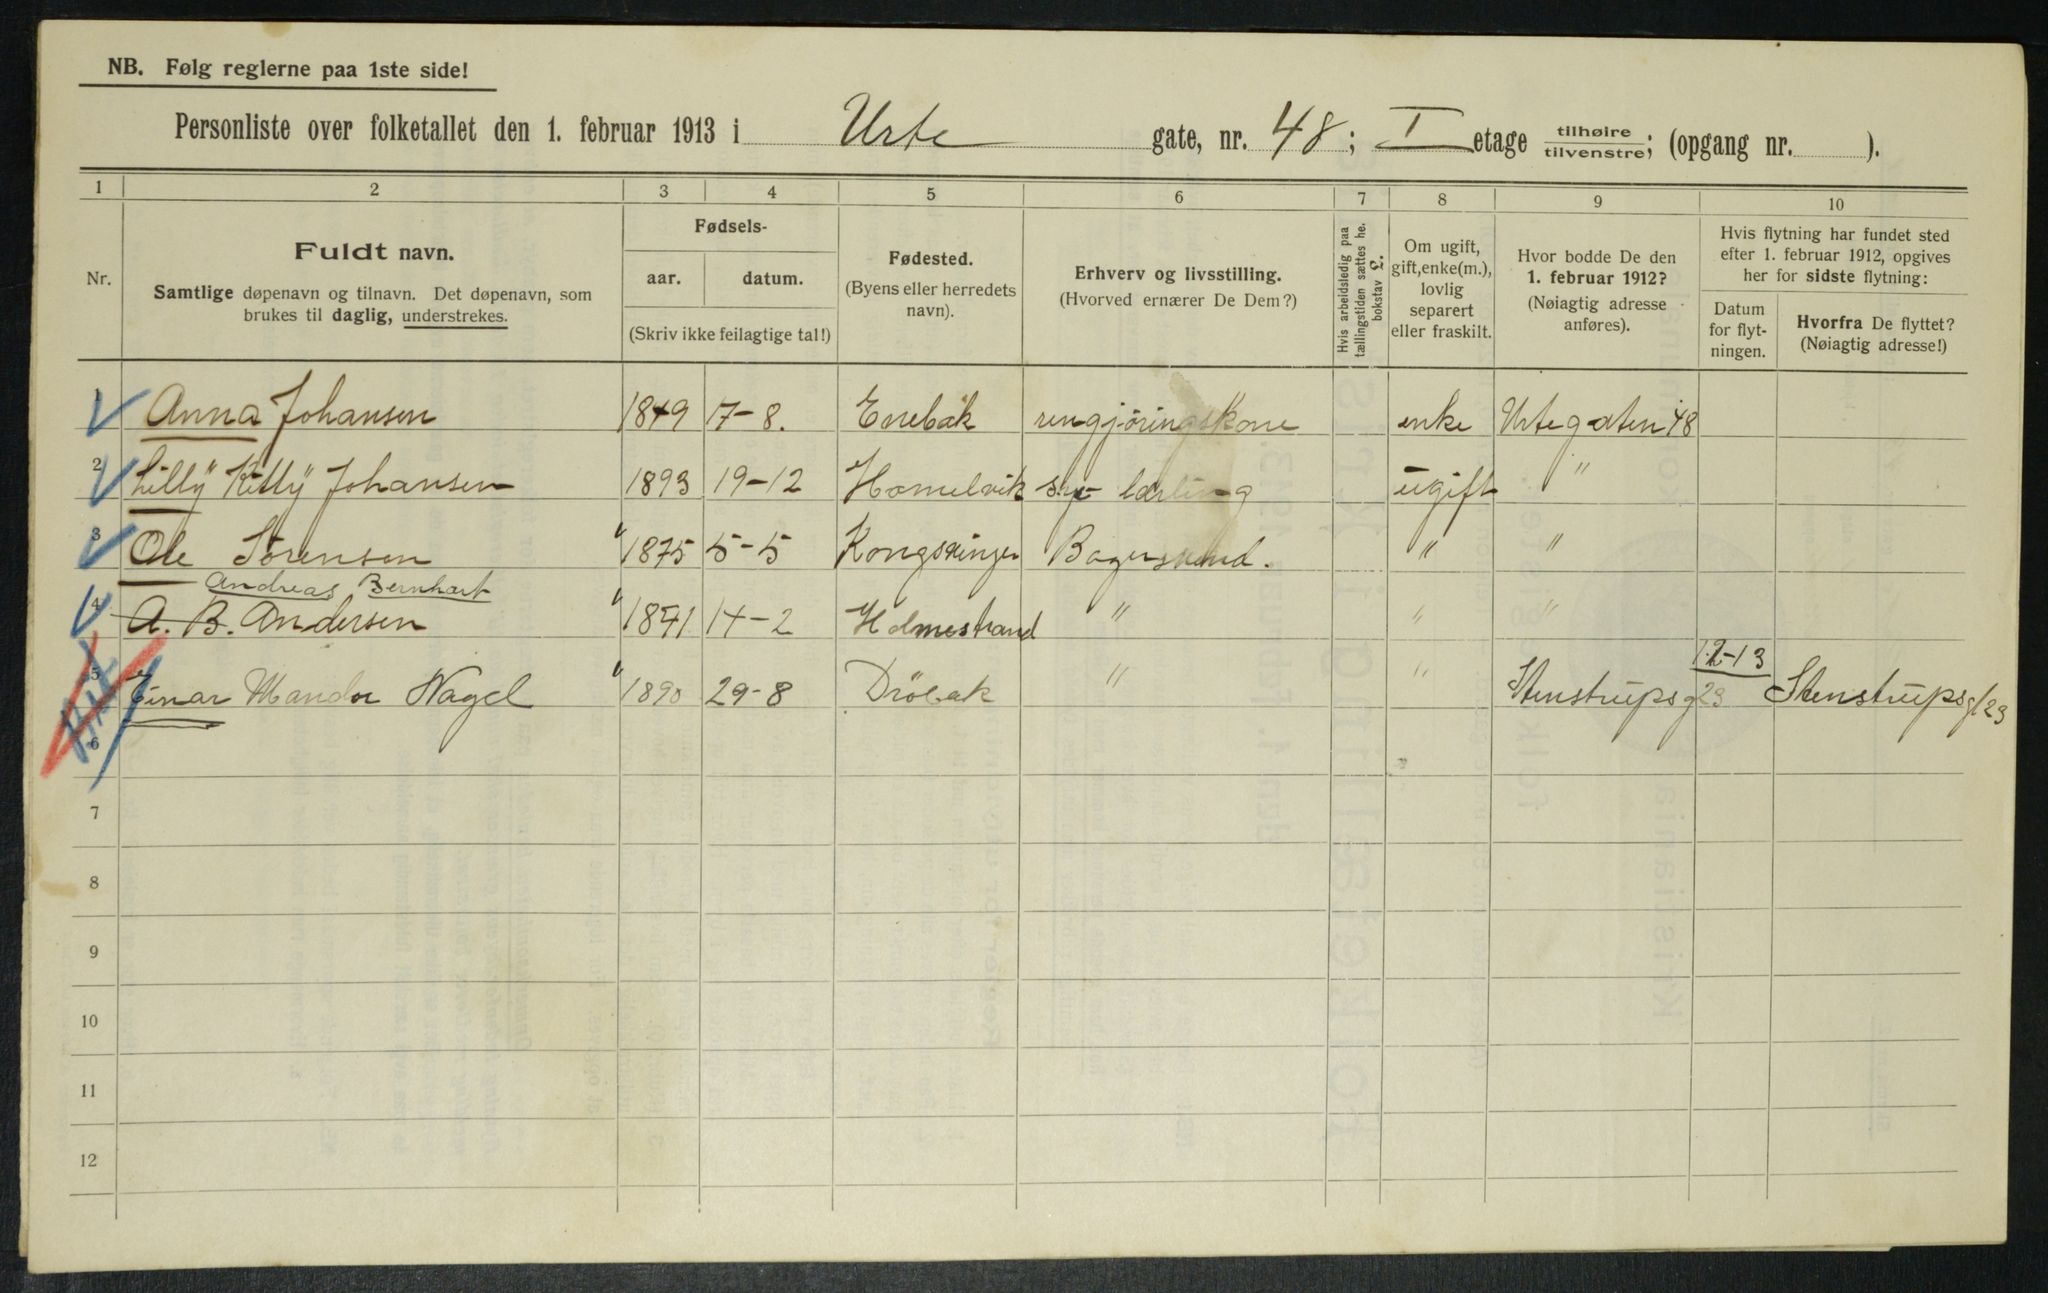 NB. Følg reglerne paa 1ste side!
Personliste over folketallet den 1. februar 1913 i Urte gate, nr. 48; I etage tilhøire/tilvenstre; (opgang nr. ).
1 2 3 4 5 6 7 8 9 10
Nr.
Fuldt navn.
Samtlige døpenavn og tilnavn. Det døpenavn, som
brukes til daglig, understrekes.
Fødsels-
aar. datum.
(Skriv ikke feilagtige tal!)
Fødested.
(Byens eller herredets
navn).
Erhverv og livsstilling.
(Hvorved ernærer De Dem?)
Hvis arbeidsledig paa
tællingstiden sættes he.
bokstav l.
Om ugift,
gift, enke(m.),
lovlig
separert
eller fraskilt.
Hvor bodde De den
1. februar 1912?
(Nøiagtig adresse
anføres).
Hvis flytning har fundet sted
efter 1. februar 1912, opgives
her for sidste flytning:
Datum
for flyt-
ningen.
Hvorfra De flyttet?
(Nøiagtig adresse!)
1 Anna Johansen 1849 17-8. Enebak rengjøringskone enke Urtegaten 48
2 Lilly Killy Johansen 1893 19-12 Homelvik sy lærling ugift "
3 Ole Sørensen " 1875 5-5 Kongsvinger Bagersvend. " "
Andreas Bernhart
4 A. B. Andersen " 1871 14-2 Holmestrand " " "
1.2-13
5 Einar Nagel " 1890 29-8 Drøbak " " Stenstrupsg 23 Stenstrupsg 23
6
7
8
9
10
11
12